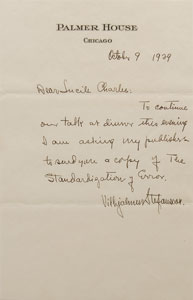 PALMER HOUSE
CHICAGO
October 9 1939
Dear Lucile Charles:
To continue
our talk at dinner this evening
I am asking my publishers
to send you a copy of The
Standardization of Error.
Vilhjalmur Stefansson